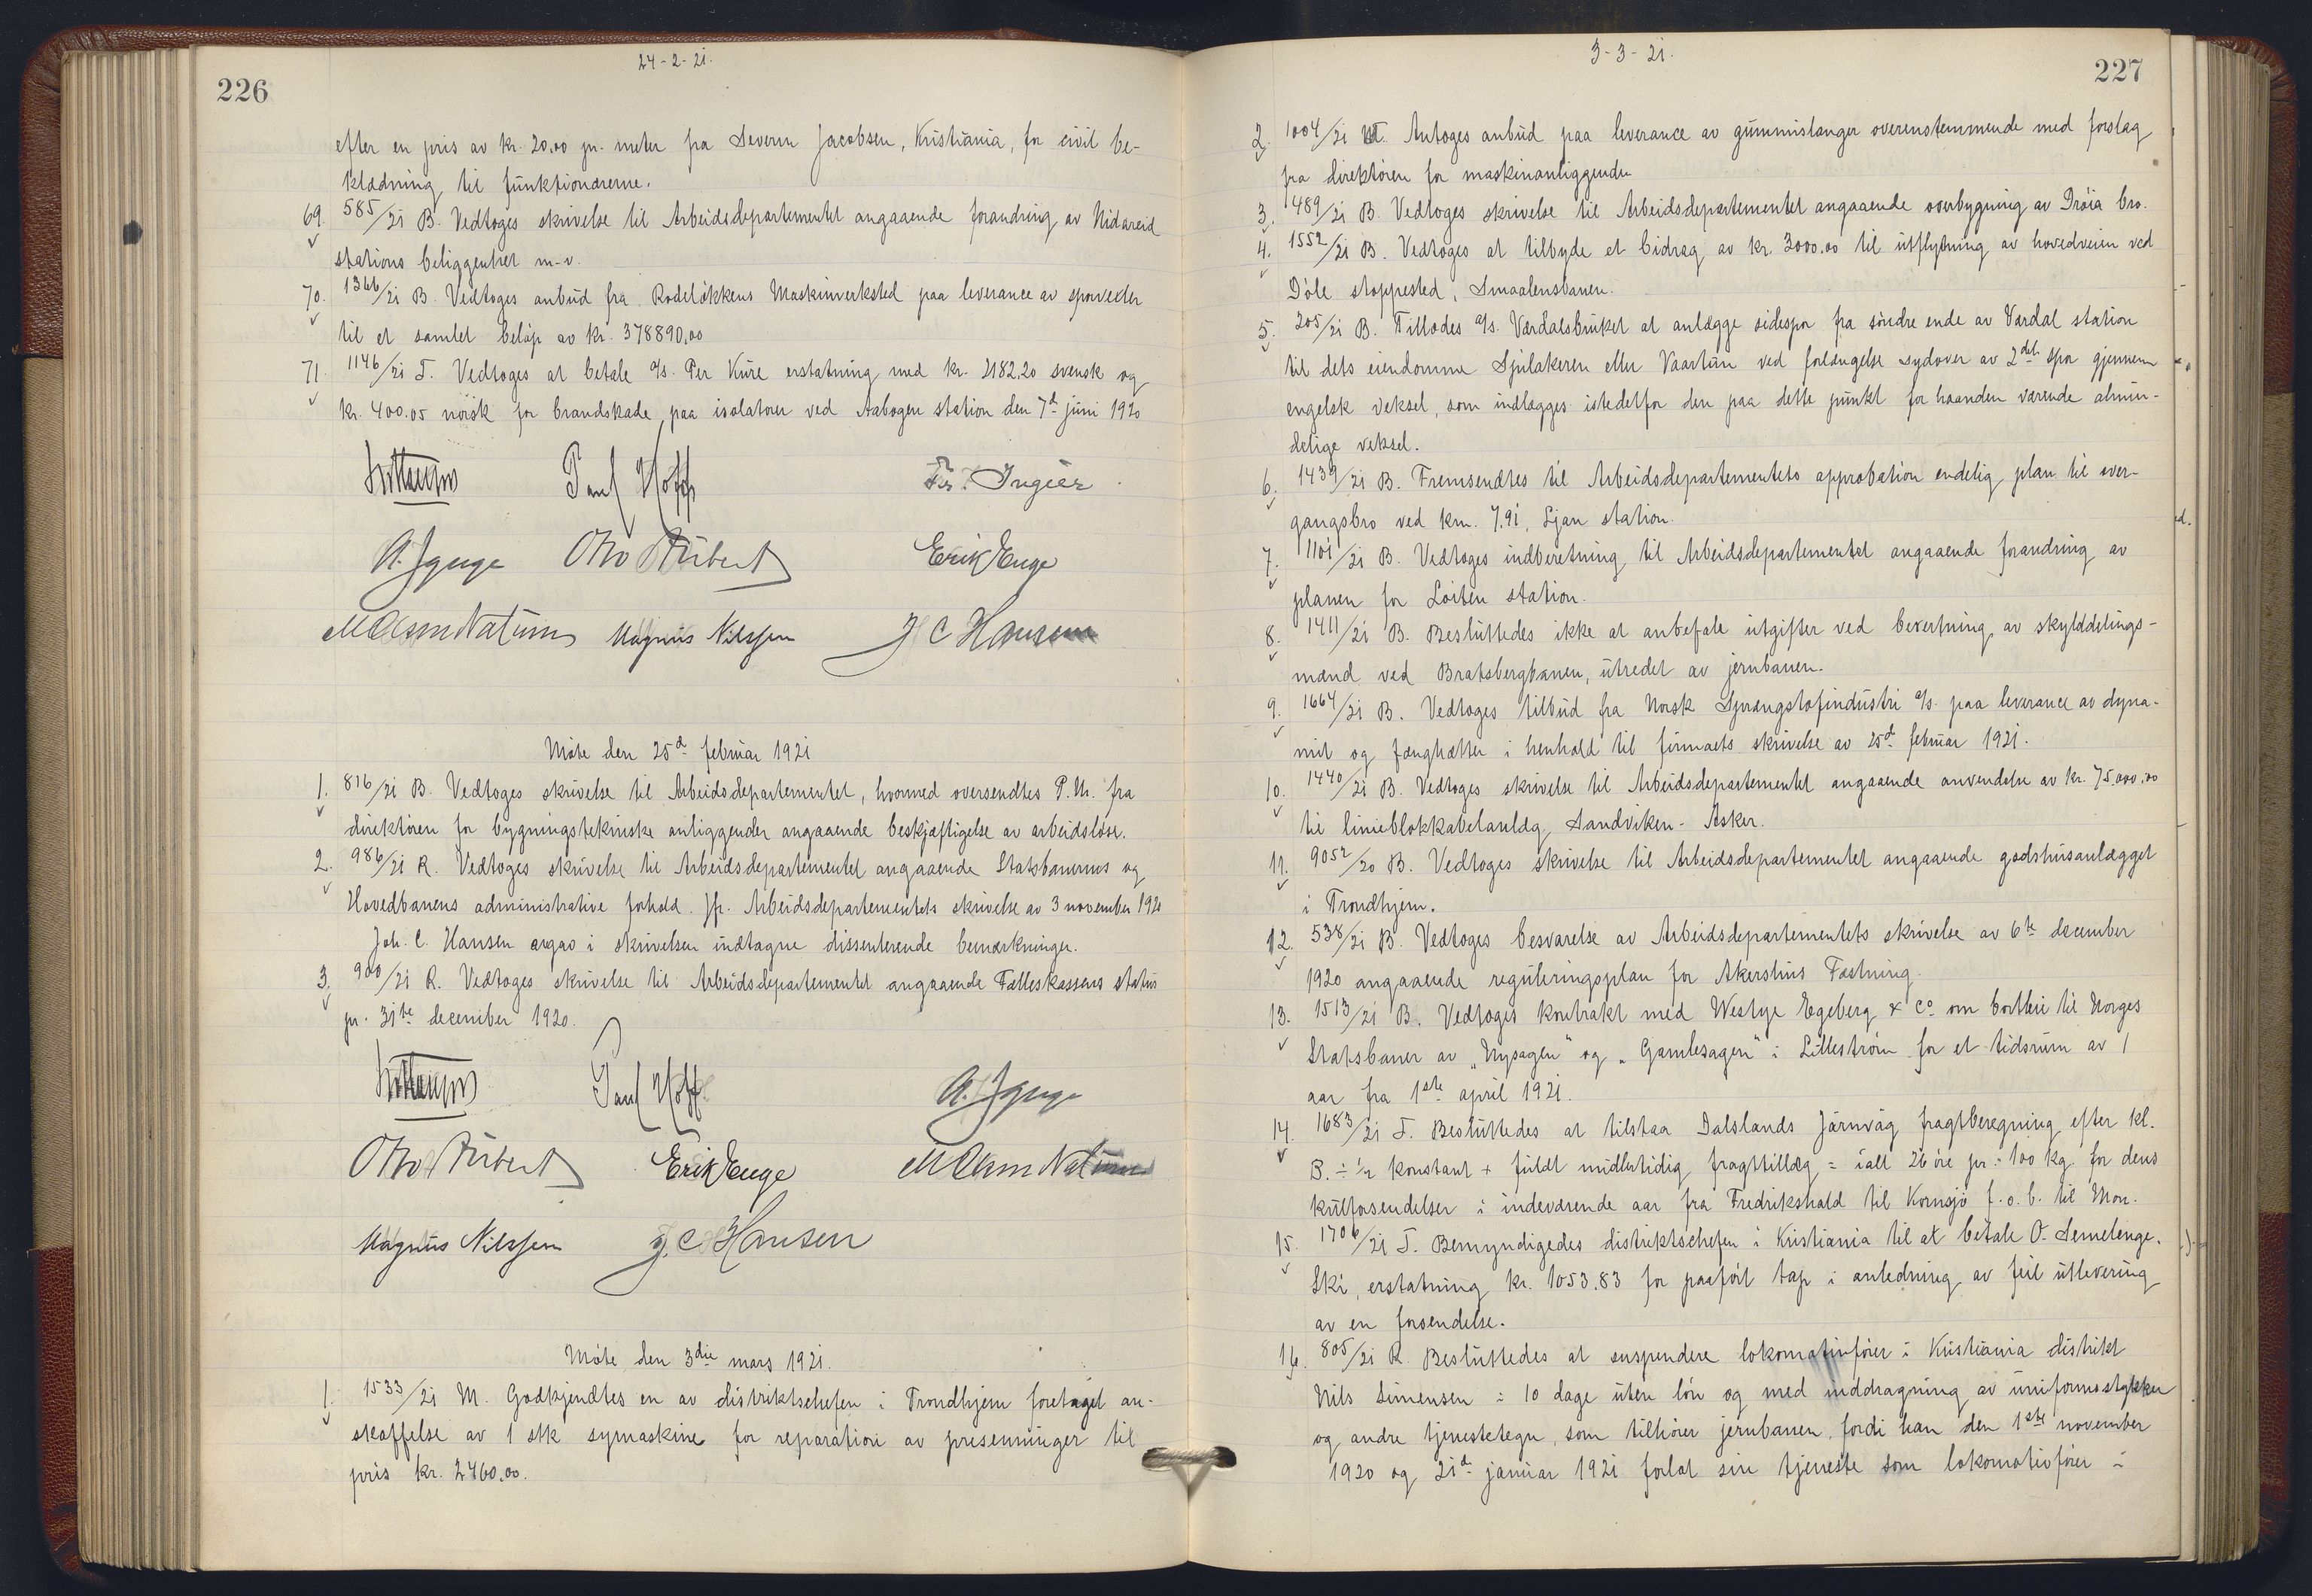 24-2-21.
226
efter en pris av kr. 20,00 pr. meter fra Severin Jacobsen, Kristiania, for civil be-
klædning til funktionærerne.
69. 585/21 B. Vedtoges skrivelse til Arbeidsdepartementet angaaende forandring av Nidareid
stations beliggenhet m.v.
70. 1366/21 B. Vedtoges anbud fra Rodeløkkens Maskinverksted paa leverance av sporveksler
til et samlet beløp av kr. 378890,00
71. 1146/21 T. Vedtoges at betale a/s. Per Kure erstatning med kr. 2182,20 svensk og
kr. 400.05 norsk for brandskade paa isolatorer ved Aabogen station den 7de juni 1920
Paul Hoff Fr. Ingier
Otto Aubert Erik Enge
Magnus Nilssen J C Hansen
Møte den 25de februar 1921
1. 816/21 B. Vedtoges skrivelse til Arbeidsdepartementet, hvormed oversendtes P.M. fra
direktøren for bygningstekniske anliggender angaaende beskjæftigelse av arbeidsløse.
2. 986/21 R. Vedtoges skrivelse til Arbeidsdepartementet angaaende Statsbanernes og
Hovedbanens administrative forhold. Jfr. Arbeidsdepartementets skrivelse av 3 november 1920
Joh. C. Hansen avgav i skrivelsen indtagne dissenterende bemerkninger.
3. 900/21 R. Vedtoges skrivelse til Arbeidsdepartementet angaaende Fælleskassens status
pr. 31te december 1920.
Paul Hoff
Otto Aubert Erik Enge
Magnus Nilssen J. C Hansen
Møte den 3die mars 1921.
1. 1533/21 M. Godkjendtes en av distriktschefen i Trondhjem foretaget an-
skaffelse av 1 stk symaskine for reparation av presenninger til
pris kr. 2460.00.
3-3-21.
227
2. 1004/21 M. Antoges anbud paa leverance av gummislanger overenstemmende med forslag
fra direktøren for maskinanliggender
3. 1489/21 B. Vedtoges skrivelse til Arbeidsdepartementet angaaende overbygning av Drøia bro.
4. 1552/21 B. Vedtoges at tilbyde et bidrag av kr. 3000.00 til utflytning av hovedveien ved
Døle stoppested, Smaalensbanen.
5. 205/21 B. Tillodes a/s. Værdalsbruket at anlægge sidespor fra søndre ende av Værdal station
til dets eiendomme Ørjulakeren eller Vaartun ved forlængelse sydover av 2det spor gjennem
engelsk veksel, som indlægges istedetfor den paa dette punkt for haanden værende almin-
delige veksel.
6. 1439/21 B. Fremsendtes til Arbeidsdepartementets approbation endelig plan til over-
gangsbro ved km. 7.91, Ljan station.
7. 1101/21 B. Vedtoges indberetning til Arbeidsdepartementet angaaende forandring av
planen for Løiten station.
8. 1411/21 B. Besluttedes ikke at anbefale utgifter ved bevertning av skylddelings-
mænd ved Bratsbergbanen, utredet av jernbanen.
9. 1664/21 B. Vedtoges tilbud fra Norsk Sprængstofindustri a/s. paa leverance av dyna-
mit og fænghætter i henhold til firmaets skrivelse av 25de februar 1921.
10. 1440/21 B. Vedtoges skrivelse til Arbeidsdepartementet angaaende anvendelse av kr. 75.000.00
til linieblokkabelanlæg Sandviken - Asker.
11. 9052/20 B. Vedtoges skrivelse til Arbeidsdepartementet angaaende godshusanlægget
i Trondhjem.
12. 538/21 B. Vedtoges besvarelse av Arbeidsdepartementets skrivelse av 6te december
1920 angaaende reguleringsplan for Akershus Fæstning.
13. 1513/21 B. Vedtoges kontrakt med Westye Egeberg & Co om bortleie til Norges
Statsbaner av „Nysagen" og „Gamlesagen" i Lillestrøm for et tidsrum av 1
aar fra 1ste april 1921.
14. 1683/21 T. Besluttedes at tilstaa Dalslands Järnväg fragtberegning efter kl.
B. ÷ 1/2 konstant + fuldt midlertidig fragttillæg = ialt 26 øre pr. 100 kg. for dens
kulforsendelser i indeværende aar fra Fredrikshald til Kornsjø f.o.b. til Mon.
15. 1706/21 T. Bemyndigedes distriktschefen i Kristiania til at betale O. Semelenge,
Ski, erstatning kr. 1053.83 for paaført tap i anledning av feil utlevering
av en forsendelse.
16. 805/21 R. Besluttedes at suspendere lokomotivfører i Kristiania distrikt
Nils Simensen i 10 dage uten løn og med inddragning av uniformsstykker
og andre tjenestetegn, som tilhører jernbanen, fordi han den 1ste november
1920 og 21de januar 1921 forlot sin tjeneste som lokomotivfører i